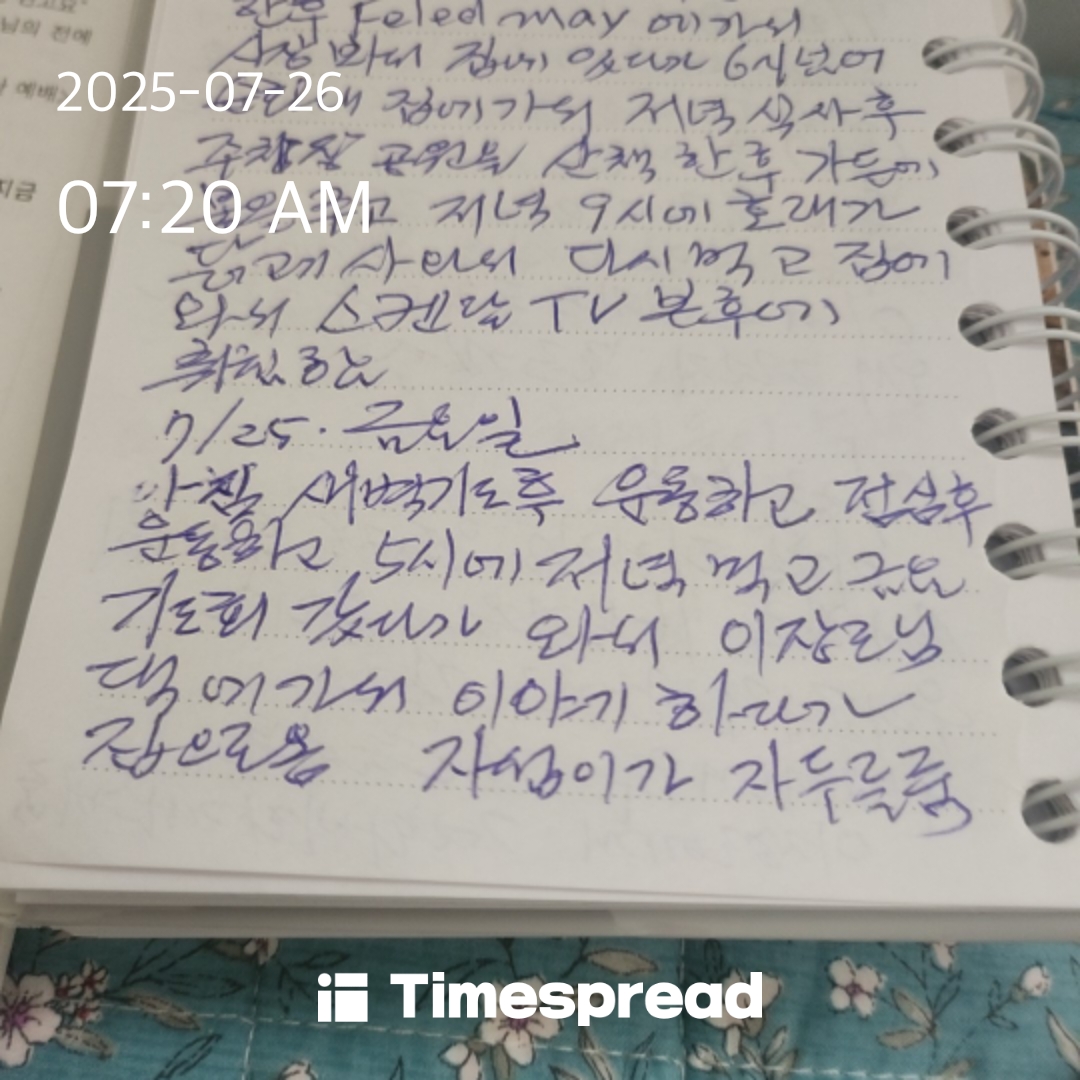 한후 Feled may 에가서
시장 봐서 집에 있다가 6시넘어
집에가서 저녁 식사후
주차장 공원을 산책 한후 가든에
저녁 9시에 호래가
사와서 다시 먹고 집에
와서 스켄랄 TV 본후에
취침하는
7/25. 금요일
아침 새벽기도후 운동하고 점심후
운동하고 5시에 저녁 먹고 금요
기도회 갔다가 와서 이장로님
댁에가서 이야기 하다가
집으로옴 자섬이가 자두를줌
님의 전에
예배
지금
2025-07-26
07:20 AM
Timespread